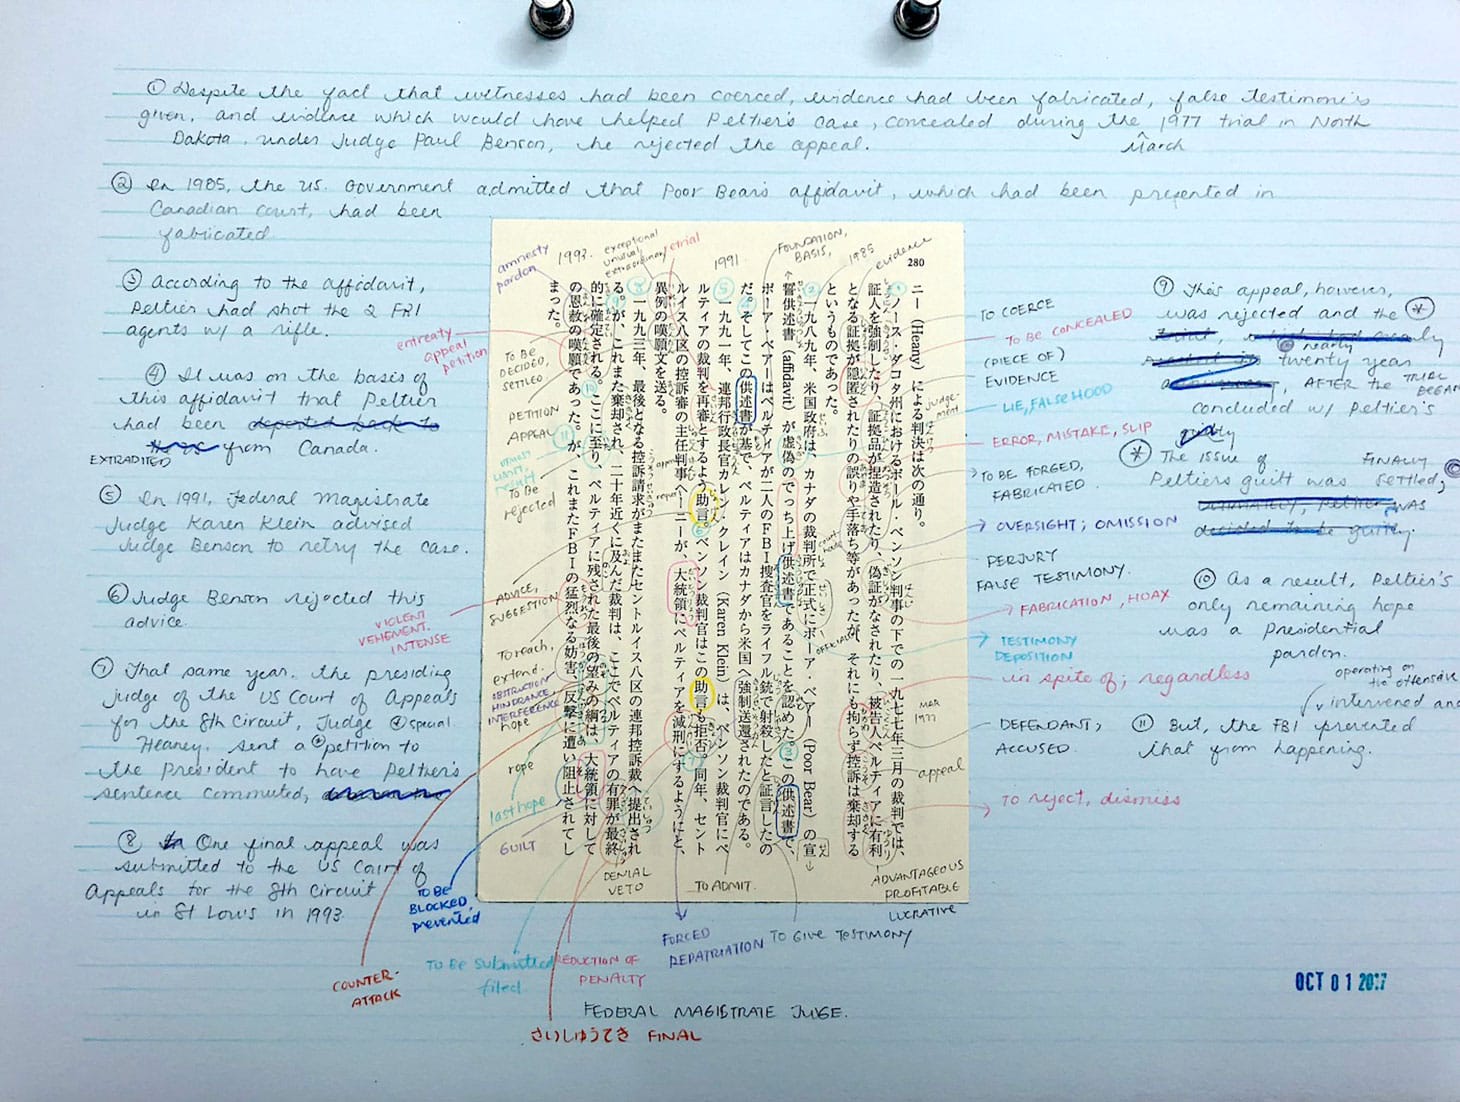 ① Despite the fact that witnesses had been coerced, evidence had been fabricated, false testimonies
given, and evidence which would have helped Peltier's case, concealed during the 1977 trial in North
March
Dakota under Judge Paul Benson, he rejected the appeal.
② In 1985, the US. Government admitted that Poor Bear's affidavit, which had been presented in
Canadian court, had been
fabricated
③ According to the affidavit,
Peltier had shot the 2 FBI
agents w/ a rifle.
④ It was on the basis of
this affidavit that Peltier
had been deported back to
EXTRADITED
from Canada.
⑤ In 1991, Federal Magistrate
Judge Karen Klein advised
Judge Benson to retry the case.
⑥ Judge Benson rejected this
advice.
⑦ That same year, the presiding
judge of the US Court of Appeals
for the 8th Circuit, Judge
special
Heaney, sent a petition to
the President to have Peltier's
sentence commuted,
⑧ One final appeal was
submitted to the US Court of
Appeals for the 8th Circuit
in St Louis in 1993.
280
ニー(Heany)による判決は次の通り。
ノース・ダコタ州におけるポール・ベンソン判事の下での一九七七年三月の裁判では、
証人を強制したり、証拠品が捏造されたり、偽証がなされたり、被告人ペルティアに有利
となる証拠が隠匿されたりの誤りや手落ち等があったが、それにも拘らず控訴は棄却する
というものであった。
一九八九年、米国政府は、カナダの裁判所で正式にポーア・ベアー(Poor Bear)の宣
誓供述書(affidavit)が虚偽のでっち上げ供述書であることを認めた。この供述書で、
ポーア・ベアーはペルティアが二人のFBI捜査官をライフル銃で射殺したと証言したの
だ。そしてこの供述書が基で、ペルティアはカナダから米国へ強制送還されたのである。
一九九一年、連邦行政長官カレン・クレイン(Karen Klein)は、ベンソン裁判官にペ
ルティアの裁判を再審とするよう助言。ベンソン裁判官はこの助言も拒否。同年、セント
ルイス八区の控訴審の主任判事ヘーニーが、大統領にペルティアを減刑にするようにと、
異例の嘆願文を送る。
一九九三年、最後となる控訴請求がまたまたセントルイス八区の連邦控訴裁へ提出され
る。が、これまた棄却され、二十年近くに及んだ裁判は、ここでペルティアの有罪が最終
的に確定される。ここに至り、ペルティアに残された最後の望みの綱は、大統領に対して
の恩赦の嘆願であった。が、これまたFBIの猛烈なる妨害、反撃に遭い阻止されてし
まった。
amnesty
pardon
1993.
exceptional
unusual
extraordinary
retrial
1991
FOUNDATION,
BASIS,
1985
evidence
entreaty
appeal
petition
TO BE
DECIDED,
SETTLED
PETITION
APPEAL
result
To be
rejected
ADVICE,
SUGGESTION
VIOLENT
VEHEMENT.
INTENSE
To reach,
extend.
OBSTRUCTION
HINDRANCE
INTERFERENCE
hope
rope
last hope
GUILT
TO BE
BLOCKED,
prevented
COUNTER-
ATTACK
DENIAL
VETO
TO ADMIT.
TO BE submitted
filed
REDUCTION OF
PENALTY
FORCED
REPATRIATION
TO GIVE TESTIMONY
ADVANTAGEOUS
PROFITABLE
LUCRATIVE
FEDERAL MAGISTRATE JUGE.
さいしゅうてき FINAL
TO COERCE
TO BE CONCEALED
(PIECE OF)
EVIDENCE
judge-
ment
LIE, FALSEHOOD
ERROR, MISTAKE, SLIP
TO BE FORGED,
FABRICATED.
OVERSIGHT; OMISSION
PERJURY
FALSE TESTIMONY.
FABRICATION, HOAX
TESTIMONY
DEPOSITION
in spite of; regardless
MAR
1977
DEFENDANT,
ACCUSED.
appeal
To reject, dismiss
⑨ This appeal, however,
was rejected and the
nearly
twenty year
AFTER the TRIAL
BEGAN
concluded w/ Peltier's
guilty
The issue of FINALLY
Peltier's guilt was settled;
⑩ As a result, Peltier's
only remaining hope
was a presidential
pardon.
operating on
the offensive
intervened and
⑪ But, the FBI prevented
that from happening.
OCT 01 2017